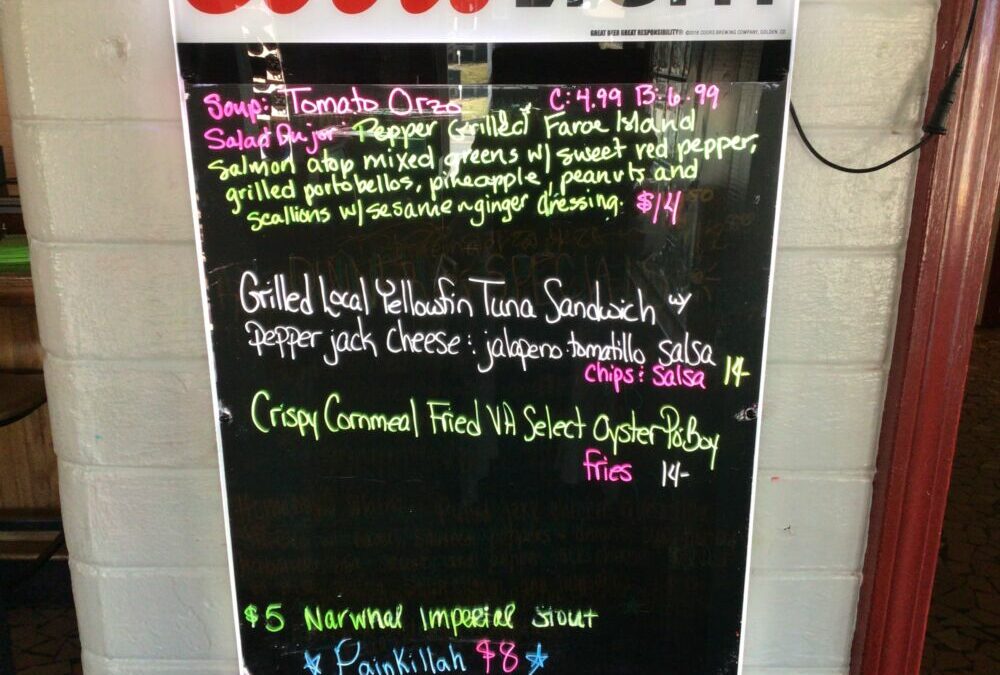 Coors LIGHT
GREAT BEER GREAT RESPONSIBILITY® ©2018 COORS BREWING COMPANY, GOLDEN, CO
Soup: Tomato Orzo C: 4.99 B: 6.99
Salad Du jor: Pepper Grilled Faroe Island
Salmon atop mixed greens w/ sweet red pepper,
grilled portobellos, pineapple, peanuts and
scallions w/ sesame ~ ginger dressing. $14
Grilled Local Yellowfin Tuna Sandwich w/
pepper jack cheese : jalapeno-tomatillo salsa
chips : salsa 14-
Crispy Cornmeal Fried VA Select Oyster Po'Boy
fries 14-
$5 Narwhal Imperial Stout
PainKillah $8